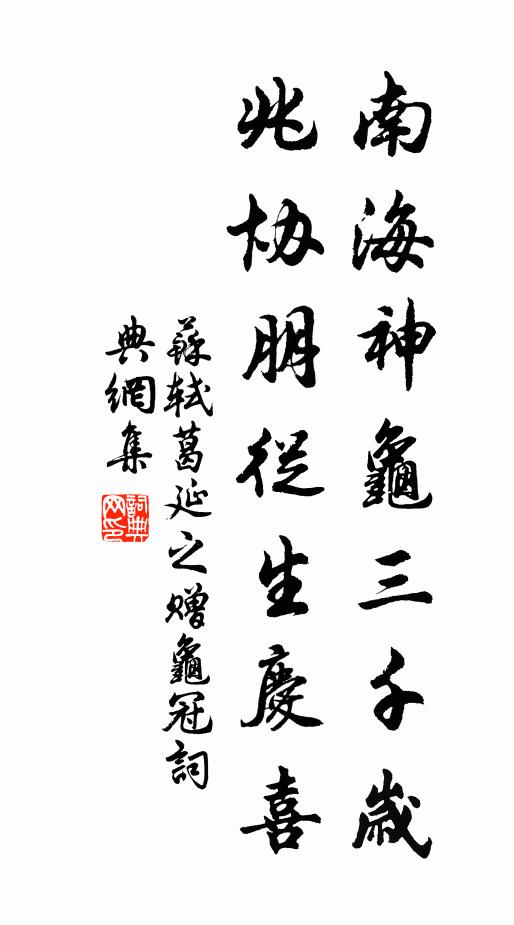 南海神龜三千歲
兆协朋從生慶喜
蘇軾葛延之贈龜冠詞
典網集
詞典網印